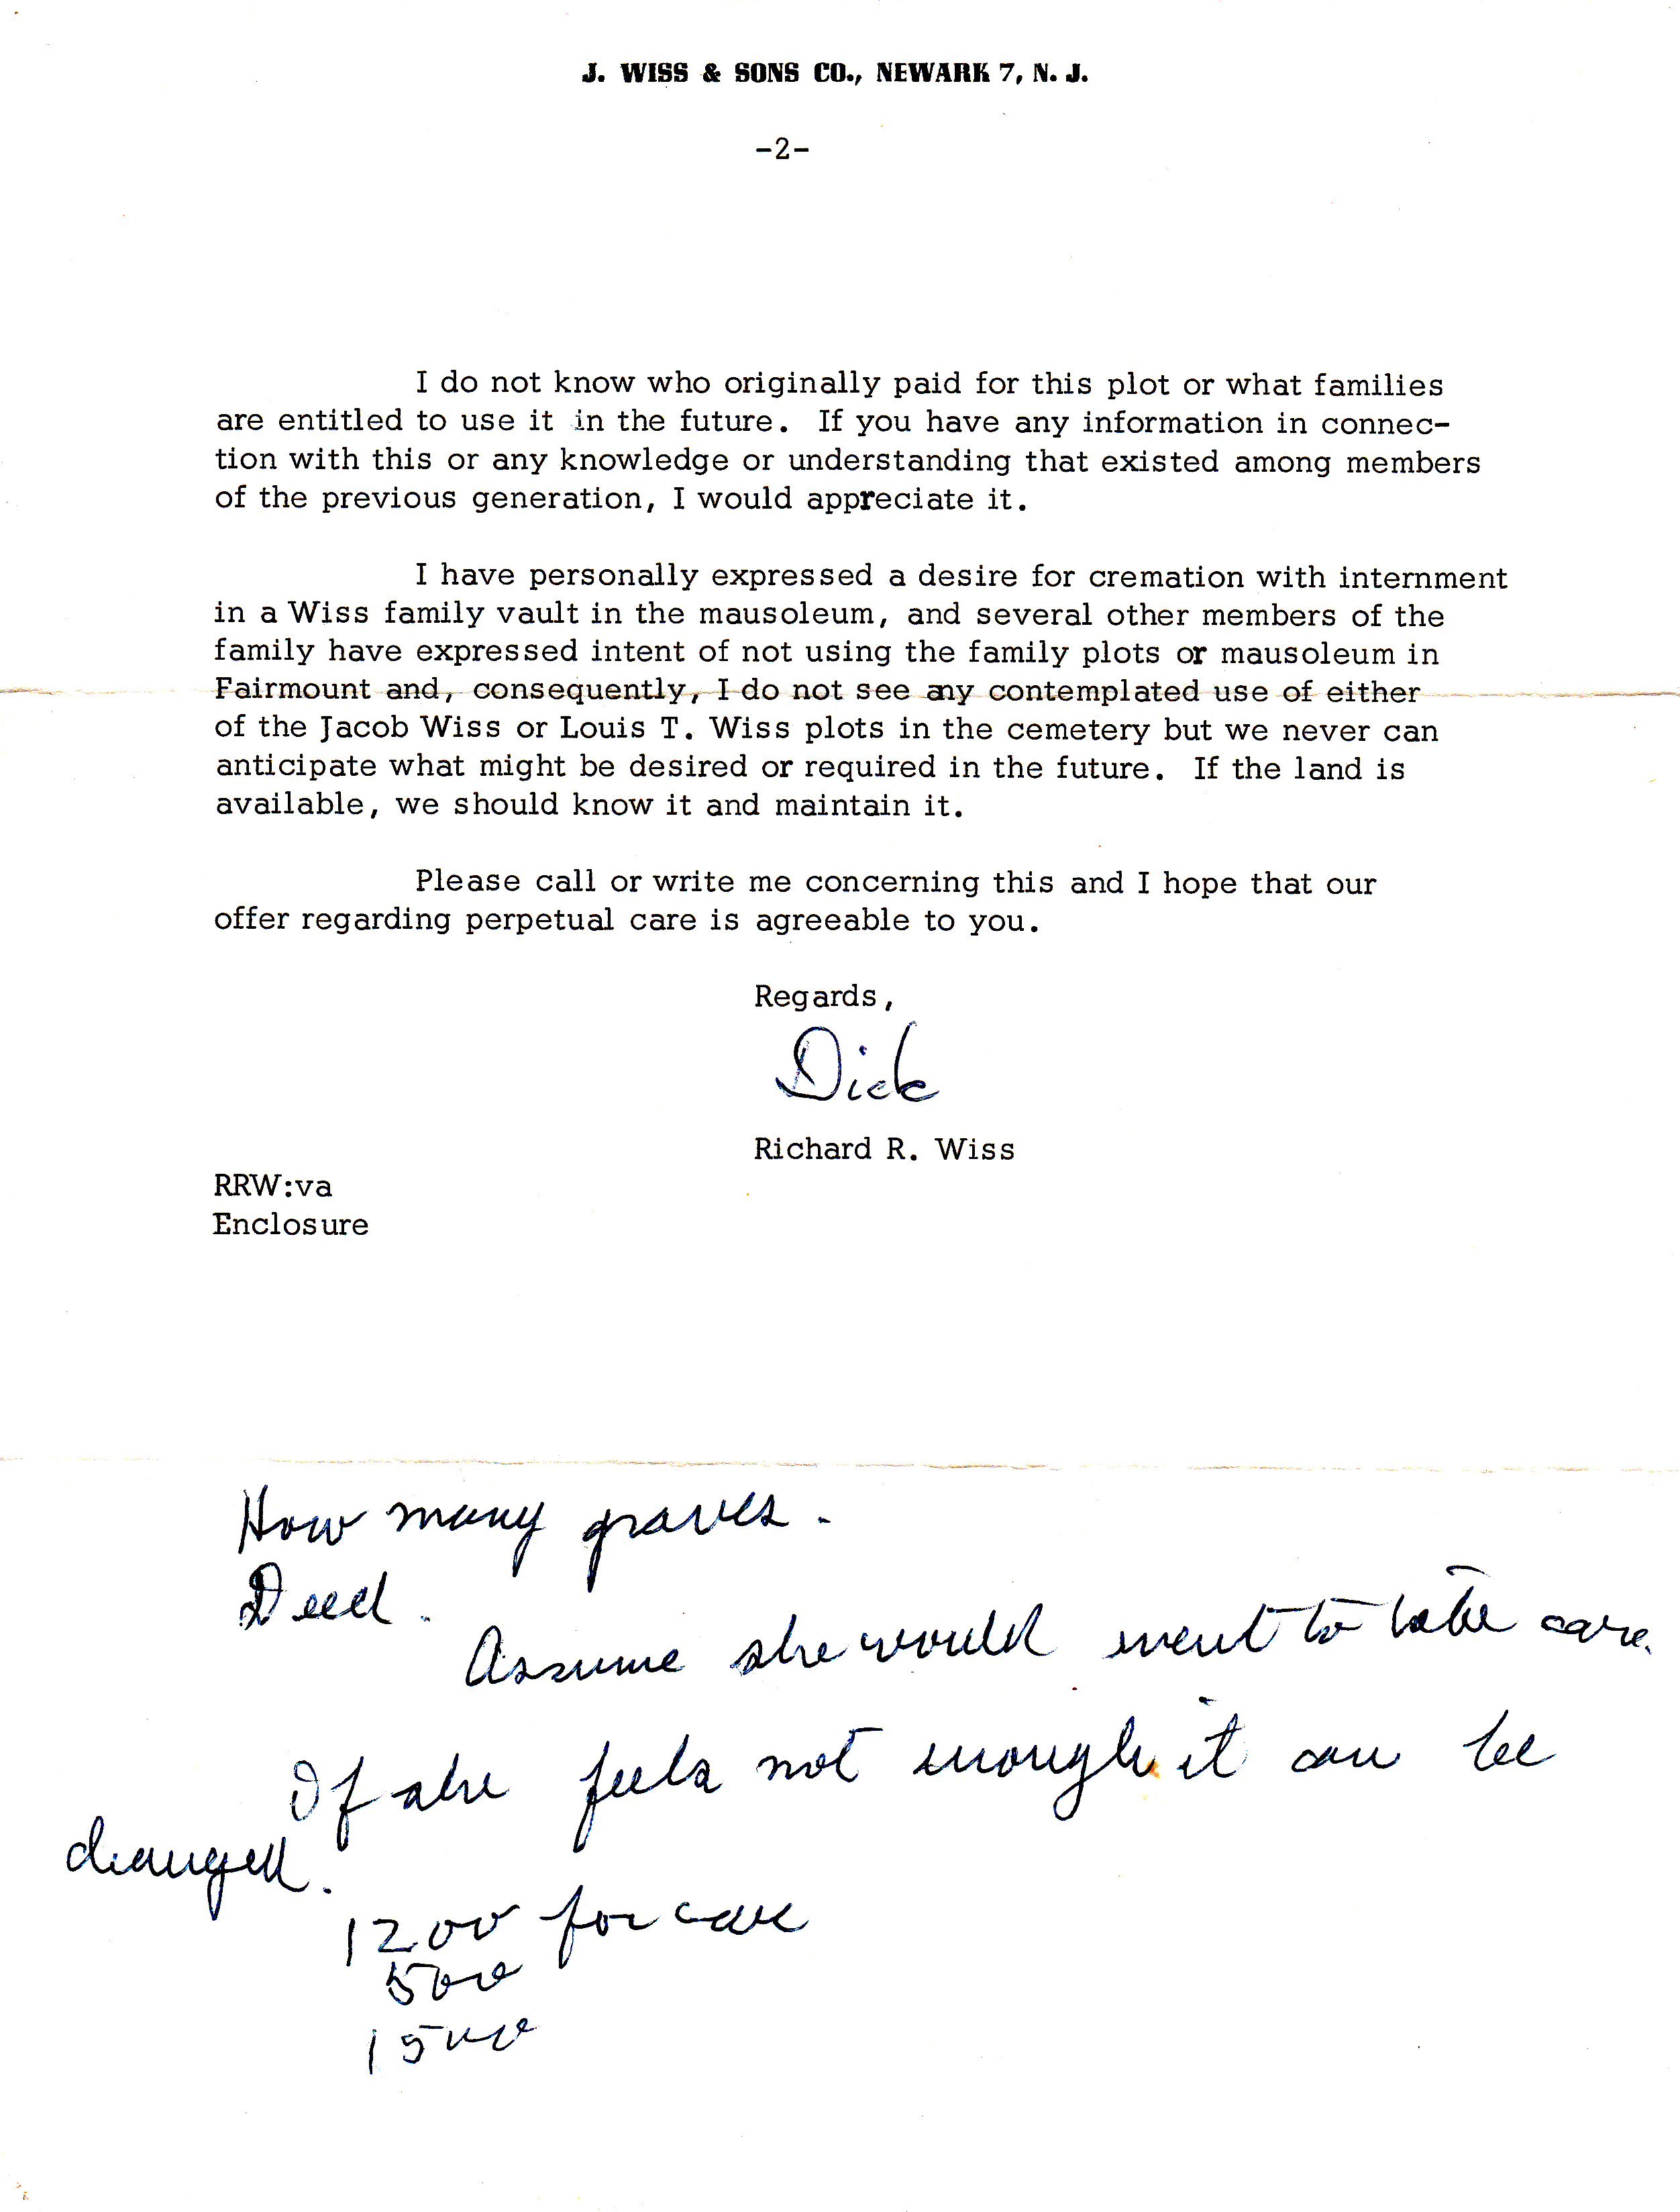 J. WISS & SONS CO., NEWARK 7, N. J.
-2-
I do not know who originally paid for this plot or what families
are entitled to use it in the future. If you have any information in connec-
tion with this or any knowledge or understanding that existed among members
of the previous generation, I would appreciate it.
I have personally expressed a desire for cremation with internment
in a Wiss family vault in the mausoleum, and several other members of the
family have expressed intent of not using the family plots or mausoleum in
Fairmount and, consequently, I do not see any contemplated use of either
of the Jacob Wiss or Louis T. Wiss plots in the cemetery but we never can
anticipate what might be desired or required in the future. If the land is
available, we should know it and maintain it.
Please call or write me concerning this and I hope that our
offer regarding perpetual care is agreeable to you.
Regards,
Dick
Richard R. Wiss
RRW:va
Enclosure
How many graves.
Deed.
Assume she would want to take care.
If she feels not enough it can be
changed.
1200 for care
500
1500